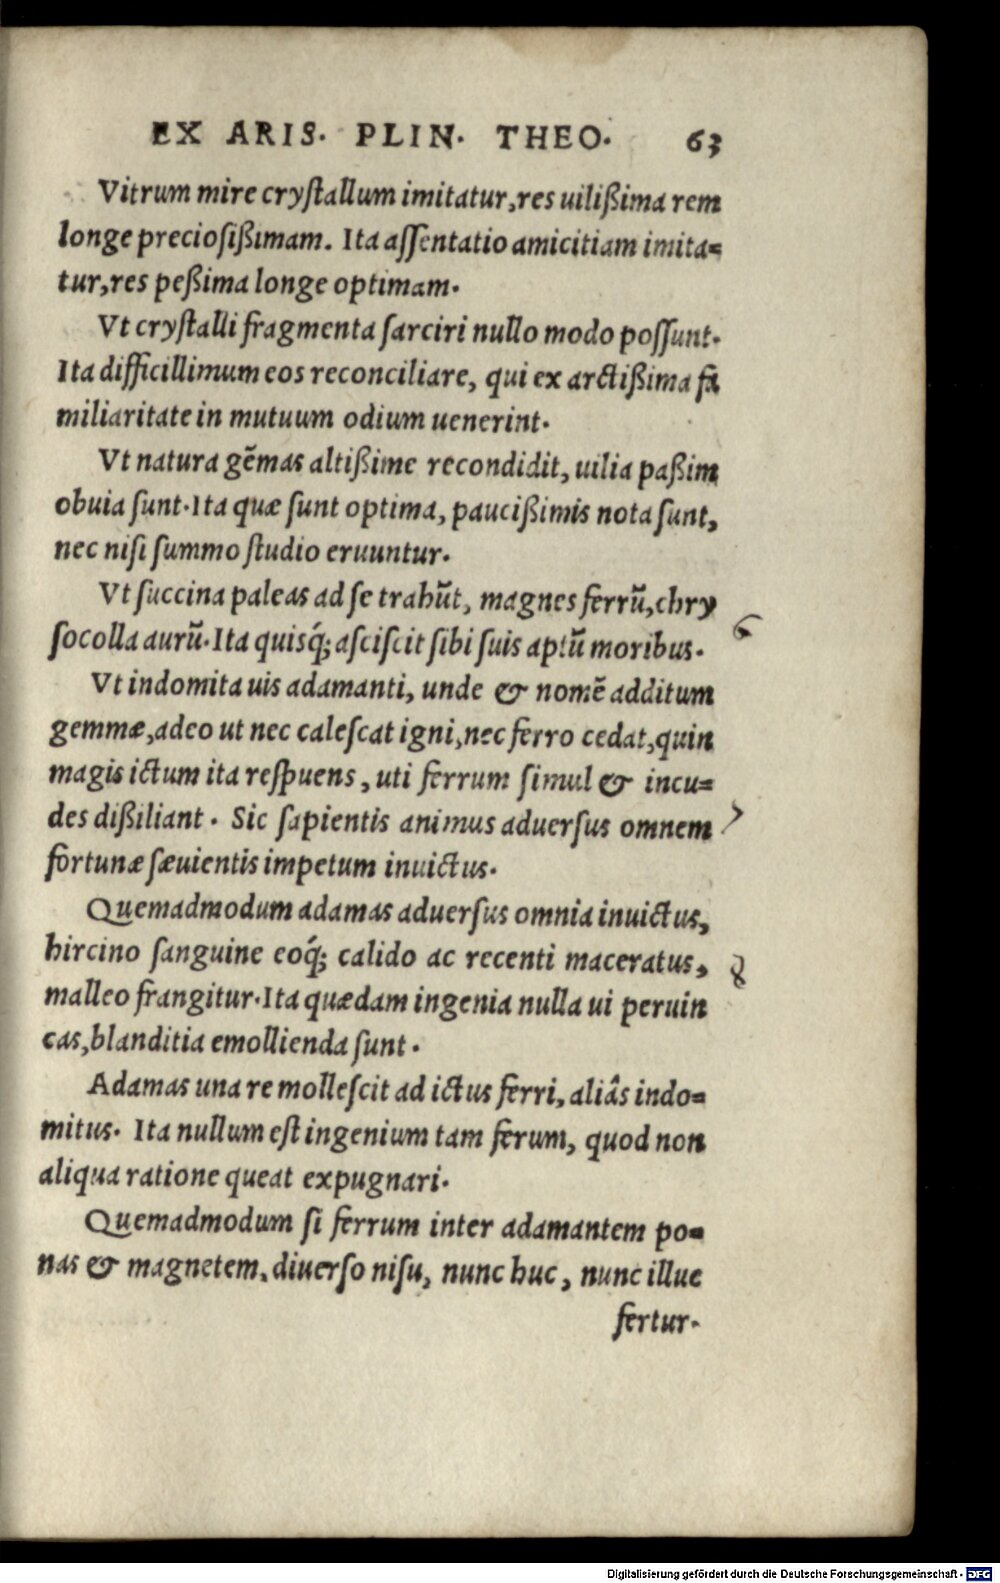 EX ARIS. PLIN. THEO. 63
Vitrum mire crystallum imitatur, res uilißima rem
longe preciosißimam. Ita assentatio amicitiam imita=
tur, res peßima longe optimam.
Vt crystalli fragmenta sarciri nullo modo possunt.
Ita difficillimum eos reconciliare, qui ex arctißima fa
miliaritate in mutuum odium uenerint.
Vt natura gẽmas altißime recondidit, uilia paßim
obuia sunt. Ita quæ sunt optima, paucißimis nota sunt,
nec nisi summo studio eruuntur.
Vt succina paleas ad se trahũt, magnes ferrũ, chry
socolla aurũ. Ita quisq́; asciscit sibi suis aptũ moribus.
6
Vt indomita uis adamanti, unde & nomẽ additum
gemmæ, adeo ut nec calescat igni, nec ferro cedat, quin
magis ictum ita respuens, uti ferrum simul & incu=
des dißiliant. Sic sapientis animus aduersus omnem
7
fortunæ sæuientis impetum inuictus.
Quemadmodum adamas aduersus omnia inuictus,
hircino sanguine eoq́; calido ac recenti maceratus,
8
malleo frangitur. Ita quædam ingenia nulla ui peruin
cas, blanditia emollienda sunt.
Adamas una re mollescit ad ictus ferri, aliâs indo=
mitus. Ita nullum est ingenium tam ferum, quod non
aliqua ratione queat expugnari.
Quemadmodum si ferrum inter adamantem po=
nas & magnetem, diuerso nisu, nunc huc, nunc illuc
fertur.
Digitalisierung gefördert durch die Deutsche Forschungsgemeinschaft - DFG